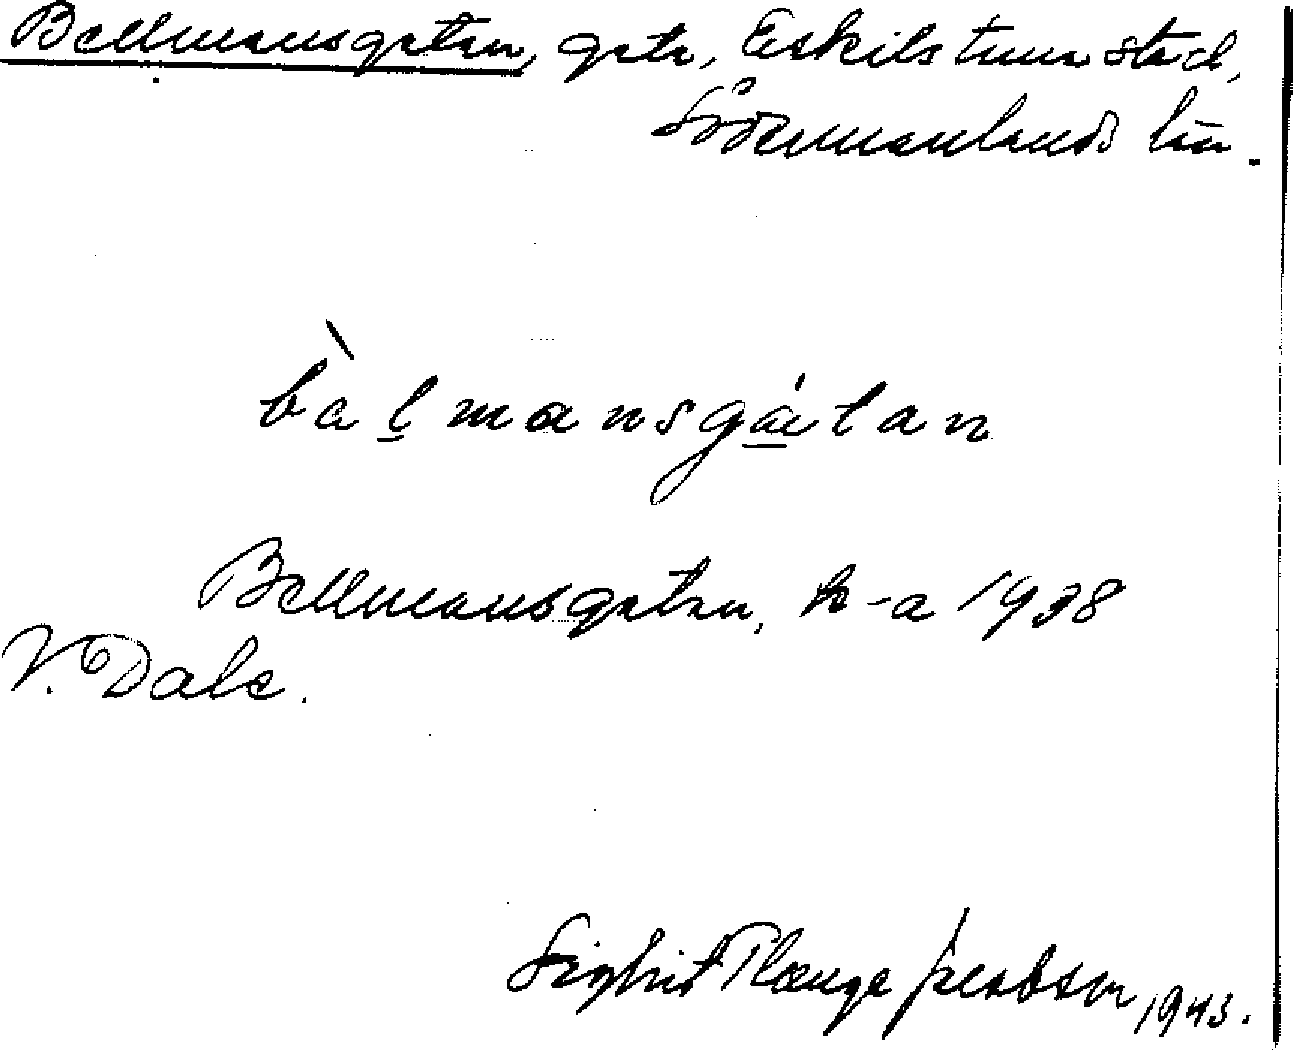 Bellmansgatan, gata, Eskilstuna stad,
Södermanlands län.
bàlmansgátan
Bellmansgatan, k-a 1938
V. Dale.
Sigbrit Plænge Jacobson, 1943.